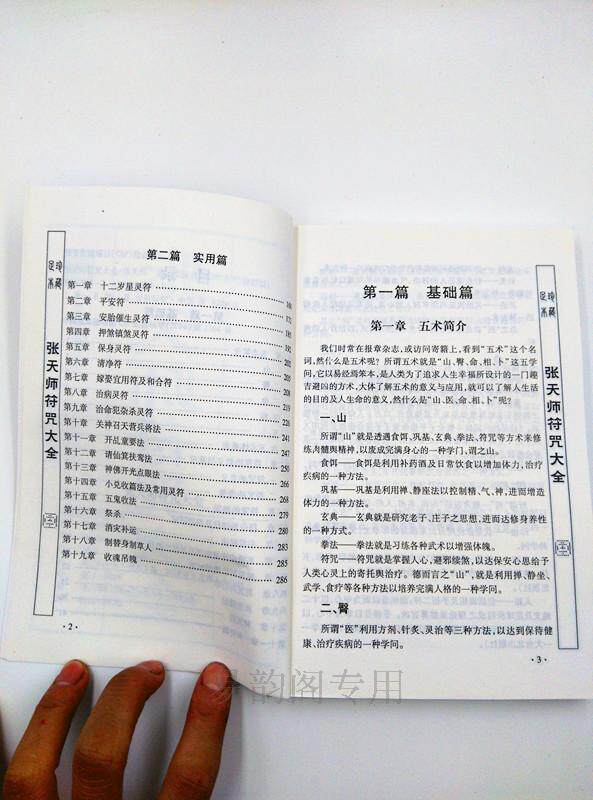 足本
珍藏
张天师符咒大全
第二篇 实用篇
第一章 十二岁星灵符
第二章 平安符 172
第三章 安胎催生灵符 181
第四章 押煞镇煞灵符 188
第五章 保身灵符
第六章 清净符
第七章 嫁娶宜用符及和合符
第八章 治病灵符
第九章 治命犯杂杀灵符
第十章 关神召天营兵将法
第十一章 开乩童要法
第十二章 请仙箕扶鸾法
第十三章 神佛开光点眼法
第十四章 小儿收篇法及常用灵符 268
第十五章 五鬼收法 279
第十六章 祭杀 280
第十七章 消灾补运
第十八章 制替身制草人 283
第十九章 收魂吊魄 285
286
·2·
第一篇 基础篇
第一章 五术简介
我们时常在报章杂志,或访问寄籍上,看到“五术”这个名
词,然什么是五术呢?所谓五术就是“山、臀、命、相、卜”这五学
问,它以易经焉笨本,是人类为了追求人生幸福所设计的一门趣
吉避凶的方术,大体了解五术的意义与应用,就可以了解人生活
的目的及人生命的意义,然什么是“山、医、命、相、卜”呢?
一、山
所谓“山”就是透遇食饵、巩基、玄典、拳法、符咒等方术来修
练肉髓舆精神,以废成完满身心的一种学门,谓之山。
食饵——食饵是利用补药酒及日常饮食以增加体力,治疗
疾病的一种方法。
巩基——巩基是利用禅、静座法以控制精、气、神,进而增造
体力的一种方法。
玄典——玄典就是研究老子、庄子之思想,进而达修身养性
的一种方式。
拳法——拳法就是习练各种武术以增强体魄。
符咒——符咒就是掌握人心,避邪缓煞,以达保安心思给予
人类心灵上的寄托舆治疗。德而言之“山”,就是利用掸、静坐、
武学、食疗等各种方法以培养完满人格的一种学门。
二、臀
所谓“医”利用方剂、针炙、灵治等三种方法,以达到保持健
康、治疗疾病的一种学问。
·3·
足本
珍藏
张天师符咒大全
韵阁专用